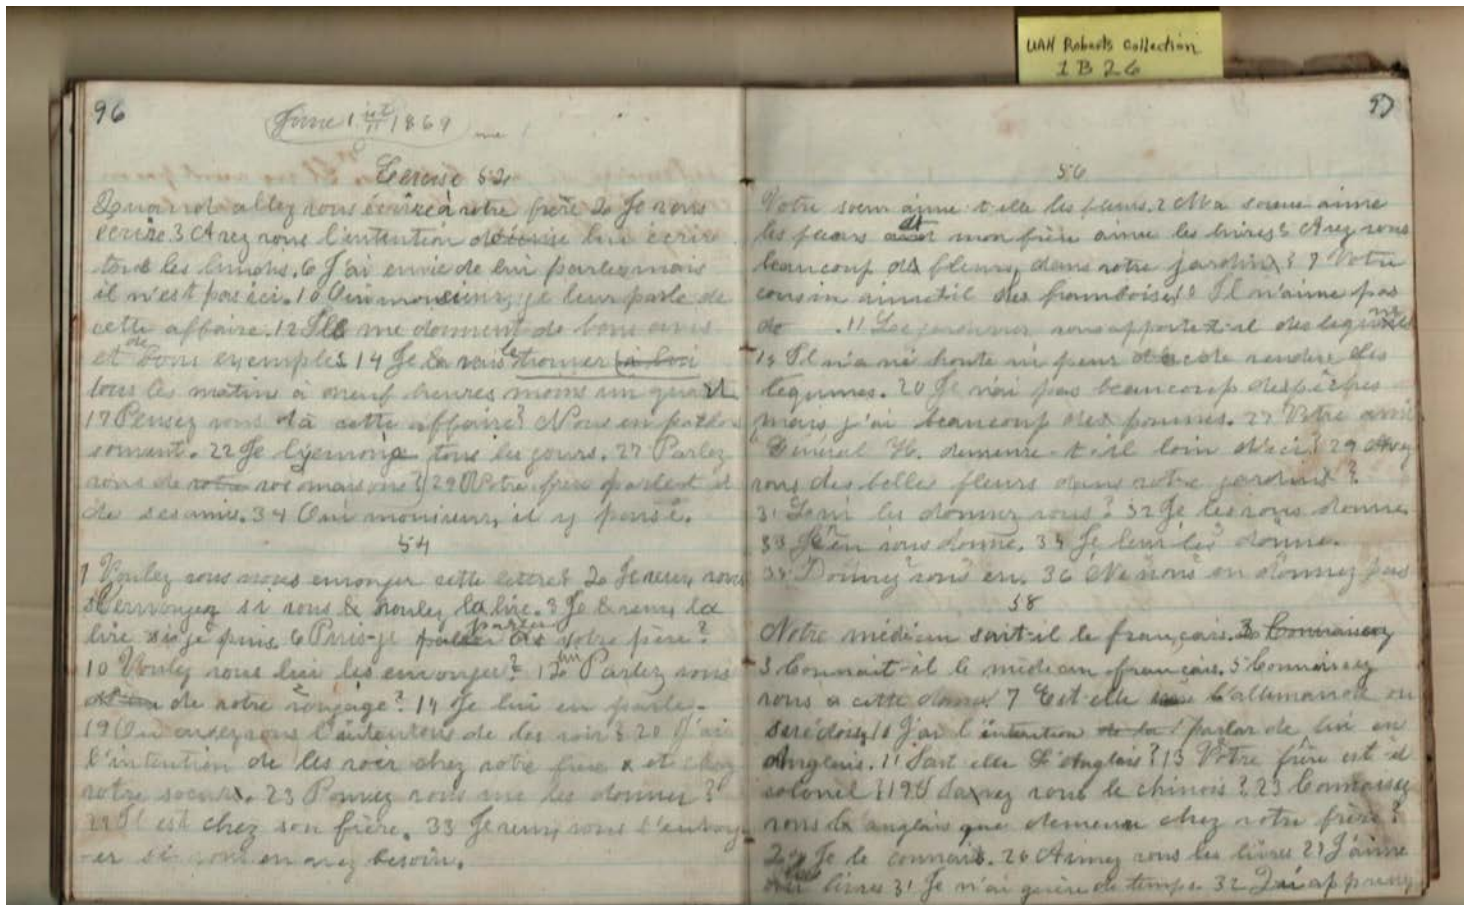 UAH Roberts Collection
1B26
96
June 1 1869
Exercise 52
Quand allez vous écrire à votre frère 2 Je vous
écrire. 3 Avez vous l'intention de lui écrire
tout les lundis. 6 J'ai envie de lui parler mais
il n'est pas ici. 10 Oui monsieur, je leur parle de
cette affaire. 12 Ils me donnent de bons avis
et de bons exemples 14 Je vais le trouver à
tous les matins à neuf heures moins un quart
17 Pensez vous à cette affaire? Nous en parlons
souvent. 22 Je l'y envoie tous les jours. 27 Parlez
vous de votre vos maisons? 29 Votre frère parle t il
de ses amis. 34 Oui monsieur, il y pense.
54
1 Voulez vous nous envoyer cette lettre? 2 Je veux vous
l'envoyer si vous voulez la lire. 3 Je veux la
lire si je puis. 6 Puis-je parler votre père?
10 Voulez vous lui les envoyer? 12 lui Parlez vous
de notre voyage? 14 Je lui en parle.
19 Où avez vous l'intention de les voir? 20 J'ai
l'intention de les voir chez votre frère et chez
votre soeur. 23 Pouvez vous me les donner?
29 Il est chez son frère. 33 Je veux vous l'envoy-
er si vous en avez besoin.
97
56
Votre soeur aime-t-elle les fleurs. 2 Ma soeur aime
les fleurs et mon frère aime les livres. 5 Avez vous
beaucoup de fleurs, dans votre jardin? 7 Votre
cousin aime til des framboises? 8 Il n'aime pas
de . 11 Le jardinier vous apporte-t-il des legumes
14 Il n'a ni honte ni peur de vendre des
legumes. 20 Je n'ai pas beaucoup des pêches
mais j'ai beaucoup des pommes. 27 Votre ami
Général H. demeure-t-il loin d'ici? 29 Avez
vous des belles fleurs dans votre jardin?
31 Lui les donnez vous? 32 Je les vous donne
33 Je en vous donne. 34 Je leur les donne.
35 Donnez vous en. 36 Ne nous en donnez pas
58
Notre médicin sait-il le français. 3 Connaissez
3 Connait-il le médicin français. 5 Connaissez
vous a cette dame? 7 Est-elle l'allemande ou
suédoise 10 J'ai l'intention de la parlar de lui en
Anglais. 11 Sait elle L'Anglais? 13 Votre frère est-il
colonel? 19 Savez vous le chinois? 23 Connaissez
vous anglais que demeure chez votre frère?
24 Je le connais. 26 Aimez vous les livres 27 J'aime
les livres 31 Je n'ai guère de temps. 32 Qui apprenez